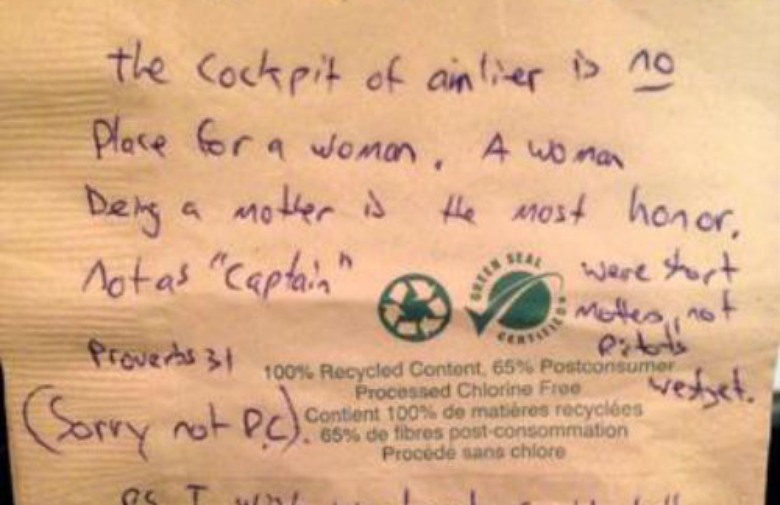 the cockpit of airliner is no
Place for a woman. A woman
Being a mother is the most honor.
Not as "captain"
were short
mothers, not
pilots
westjet.
Proverbs 31
(Sorry not P.C).
GREEN SEAL
CERTIFIED
100% Recycled Content, 65% Postconsumer
Processed Chlorine Free
Contient 100% de matières recyclées
65% de fibres post-consommation
Procédé sans chlore
as I